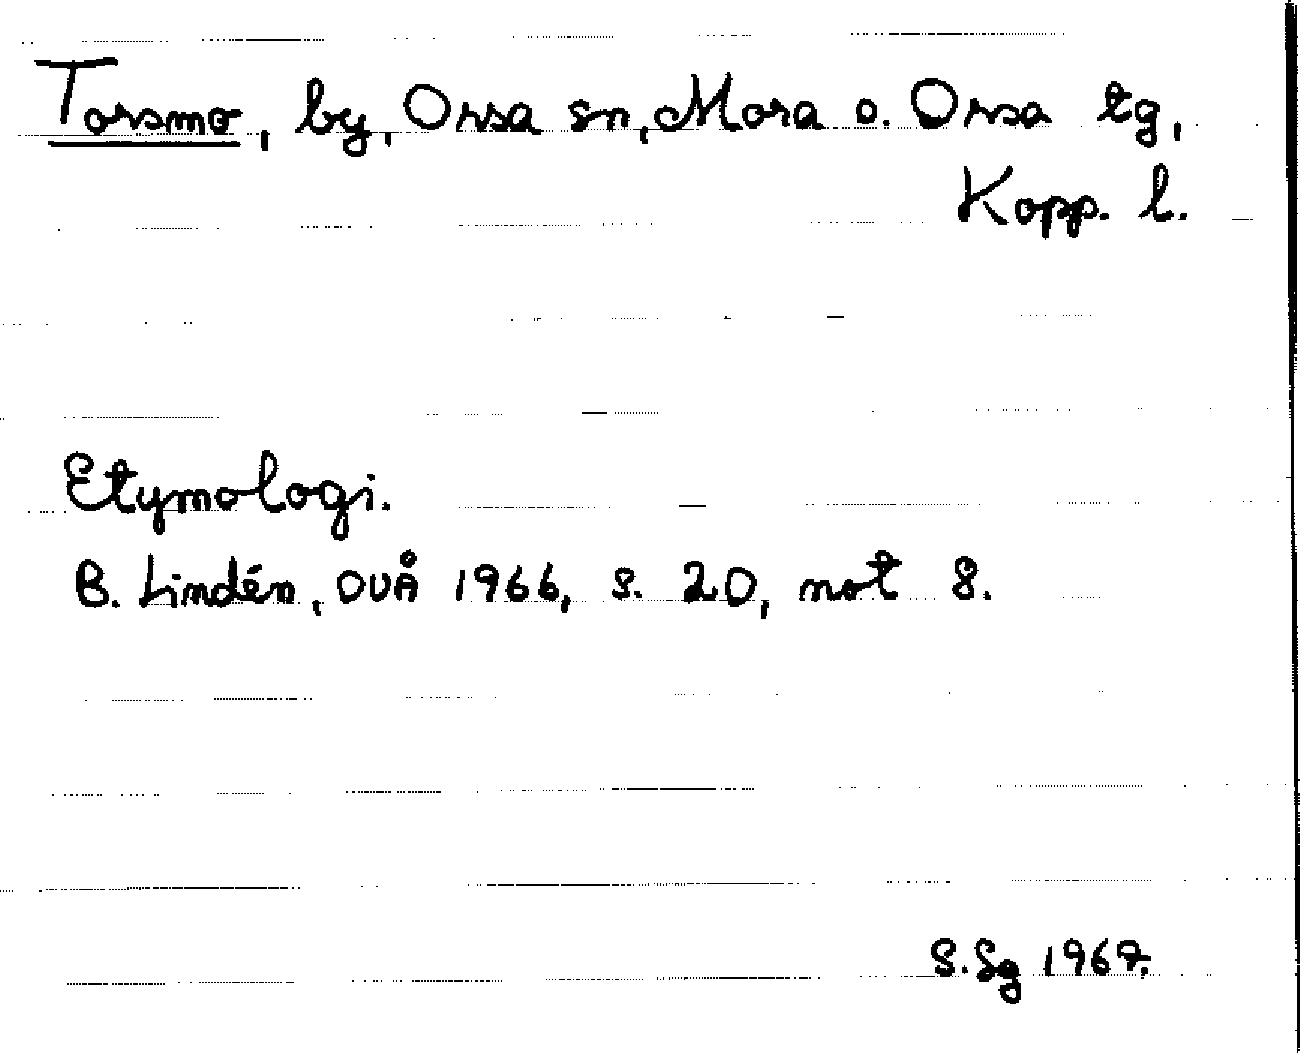 Torsmo, by, Orsa sn, Mora o. Orsa tg,
Kopp. l.
Etymologi.
B. Lindén, OUÅ 1966, s. 20, not 8.
S. Sg 1967.